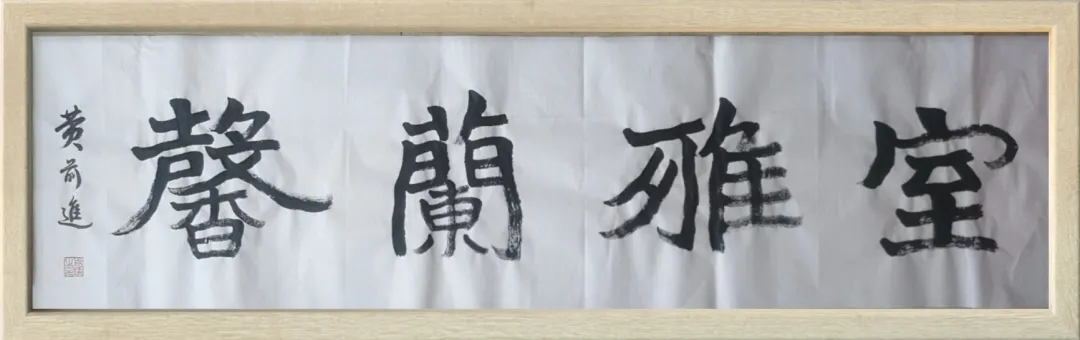 室雅蘭馨
黄前進